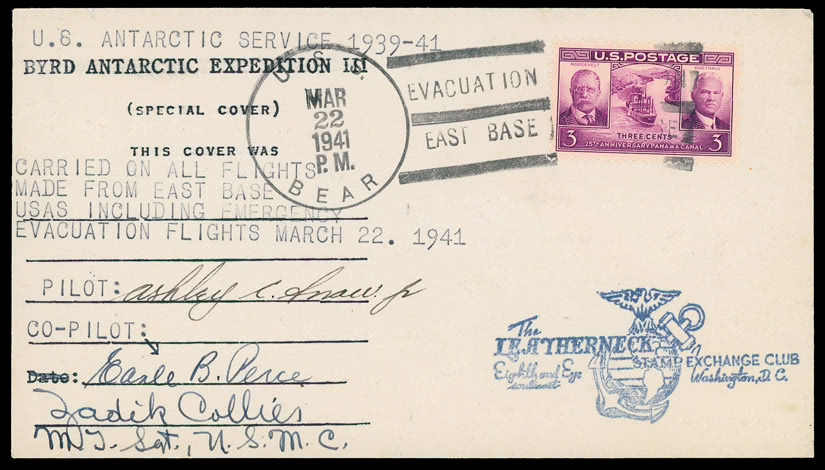 U.S. ANTARCTIC SERVICE 1939-41
BYRD ANTARCTIC EXPEDITION III
(SPECIAL COVER)
THIS COVER WAS
CARRIED ON ALL FLIGHTS
MADE FROM EAST BASE
USAS INCLUDING EMERGENCY
EVACUATION FLIGHTS MARCH 22. 1941
PILOT: Ashley C. Snow. Jr
CO-PILOT:
Date: Earle B. Perce
Zadik Collier
M.T. Sgt., U.S.M.C.
U.S.S.
MAR
22
1941
P.M.
BEAR
EVACUATION
EAST BASE
U.S. POSTAGE
ROOSEVELT
GOETHALS
3
THREE CENTS
3
25TH ANNIVERSARY PANAMA CANAL
The
LEATHERNECK
STAMP EXCHANGE CLUB
Eighth and Eye
southeast
Washington, D.C.